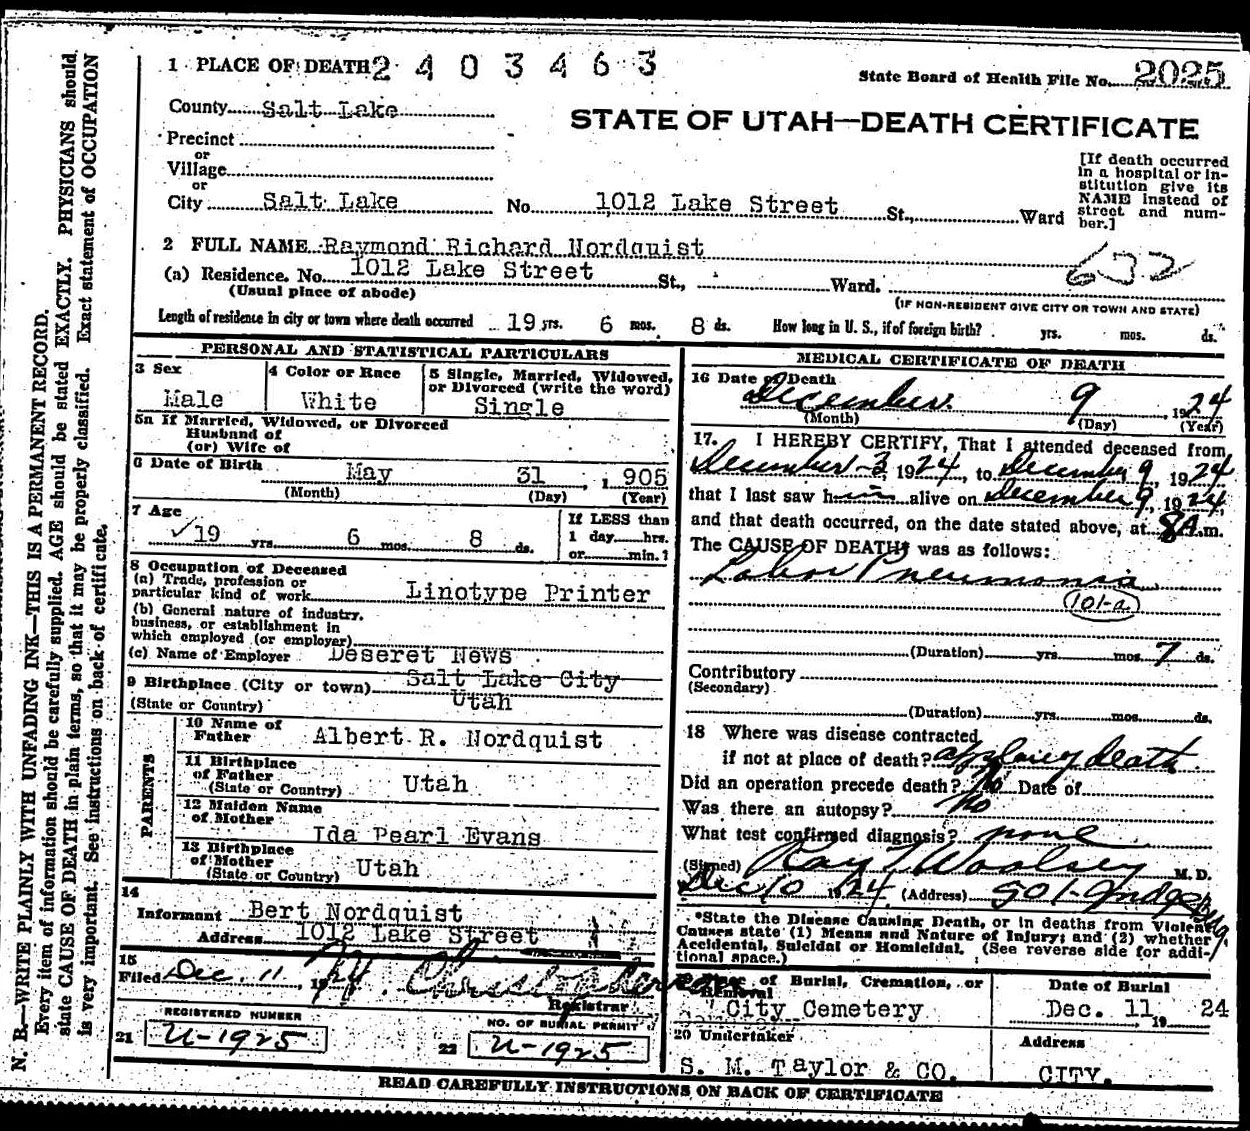 N. B.—WRITE PLAINLY WITH UNFADING INK—THIS IS A PERMANENT RECORD.
Every item of information should be carefully supplied. AGE should be stated EXACTLY. PHYSICIANS should
state CAUSE OF DEATH in plain terms, so that it may be properly classified. Exact statement of OCCUPATION
is very important. See instructions on back of certificate.
1 PLACE OF DEATH 2403463
State Board of Health File No. 2025
County Salt Lake
STATE OF UTAH—DEATH CERTIFICATE
Precinct
or
Village
or
City Salt Lake No. 1012 Lake Street St., Ward
[If death occurred
in a hospital or in-
stitution give its
NAME instead of
street and num-
ber.]
2 FULL NAME Raymond Richard Nordquist
632
(a) Residence. No. 1012 Lake Street St., Ward.
(Usual place of abode) (IF NON-RESIDENT GIVE CITY OR TOWN AND STATE)
Length of residence in city or town where death occurred 19 yrs. 6 mos. 8 ds. How long in U. S., if of foreign birth? yrs. mos. ds.
PERSONAL AND STATISTICAL PARTICULARS
3 Sex
Male
4 Color or Race
White
5 Single, Married, Widowed,
or Divorced (write the word)
Single
5a If Married, Widowed, or Divorced
Husband of
(or) Wife of
6 Date of Birth May 31, 1905
(Month) (Day) (Year)
7 Age
19 yrs. 6 mos. 8 ds.
If LESS than
1 day hrs.
or min.?
8 Occupation of Deceased
(a) Trade, profession or
particular kind of work Linotype Printer
(b) General nature of industry,
business, or establishment in
which employed (or employer)
(c) Name of Employer Deseret News
9 Birthplace (City or town) Salt Lake City
(State or Country) Utah
PARENTS
10 Name of
Father Albert R. Nordquist
11 Birthplace
of Father
(State or Country) Utah
12 Maiden Name
of Mother
Ida Pearl Evans
13 Birthplace
of Mother
(State or Country) Utah
14
Informant Bert Nordquist
Address 1012 Lake Street
15
Filed Dec. 11, 1924
Registrar
REGISTERED NUMBER
21 U-1925
NO. OF BURIAL PERMIT
22 U-1925
MEDICAL CERTIFICATE OF DEATH
16 Date of Death
December 9, 1924
(Month) (Day) (Year)
17. I HEREBY CERTIFY, That I attended deceased from
December 3, 1924, to December 9, 1924
that I last saw him alive on December 9, 1924,
and that death occurred, on the date stated above, at 8A.m.
The CAUSE OF DEATH* was as follows:
Lobar Pneumonia
101-a
(Duration) yrs. mos. 7 ds.
Contributory
(Secondary)
(Duration) yrs. mos. ds.
18 Where was disease contracted
if not at place of death? at place of death.
Did an operation precede death? No Date of
Was there an autopsy? No
What test confirmed diagnosis? none
(Signed) Ray T Woolsey M. D.
Dec 10 1924 (Address) 501-
*State the Disease Causing Death, or in deaths from Violent
Causes state (1) Means and Nature of Injury; and (2) whether
Accidental, Suicidal or Homicidal. (See reverse side for addi-
tional space.)
19 Place of Burial, Cremation, or
Removal
City Cemetery
Date of Burial
Dec. 11, 1924
20 Undertaker
S. M. Taylor & CO.
Address
CITY.
READ CAREFULLY INSTRUCTIONS ON BACK OF CERTIFICATE